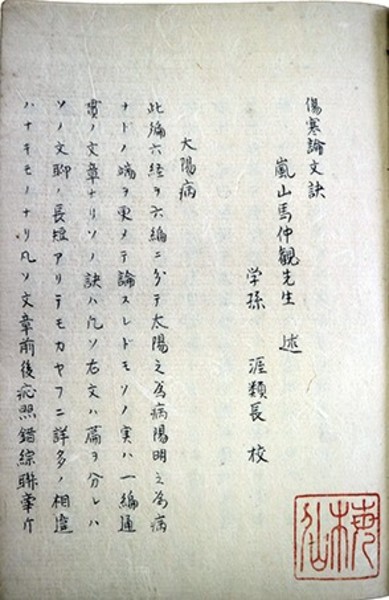 傷寒論文訣
嵐山馬仲観先生 述
学孫 涯類長 校
大陽病
此編六経ヲ六編ニ分テ太陽之為病陽明之為病
ナドノ端ヲ更メテ論スレドモソノ実ハ一編通
貫ノ文章ナリソノ訣ハ凡ソ古文ハ篇ヲ分レハ
ソノ文聊ノ長短アリテモカヤフニ詳多ノ相違
ハナキモノナリ凡ソ文章前後応照錯綜聯牽
梅仙